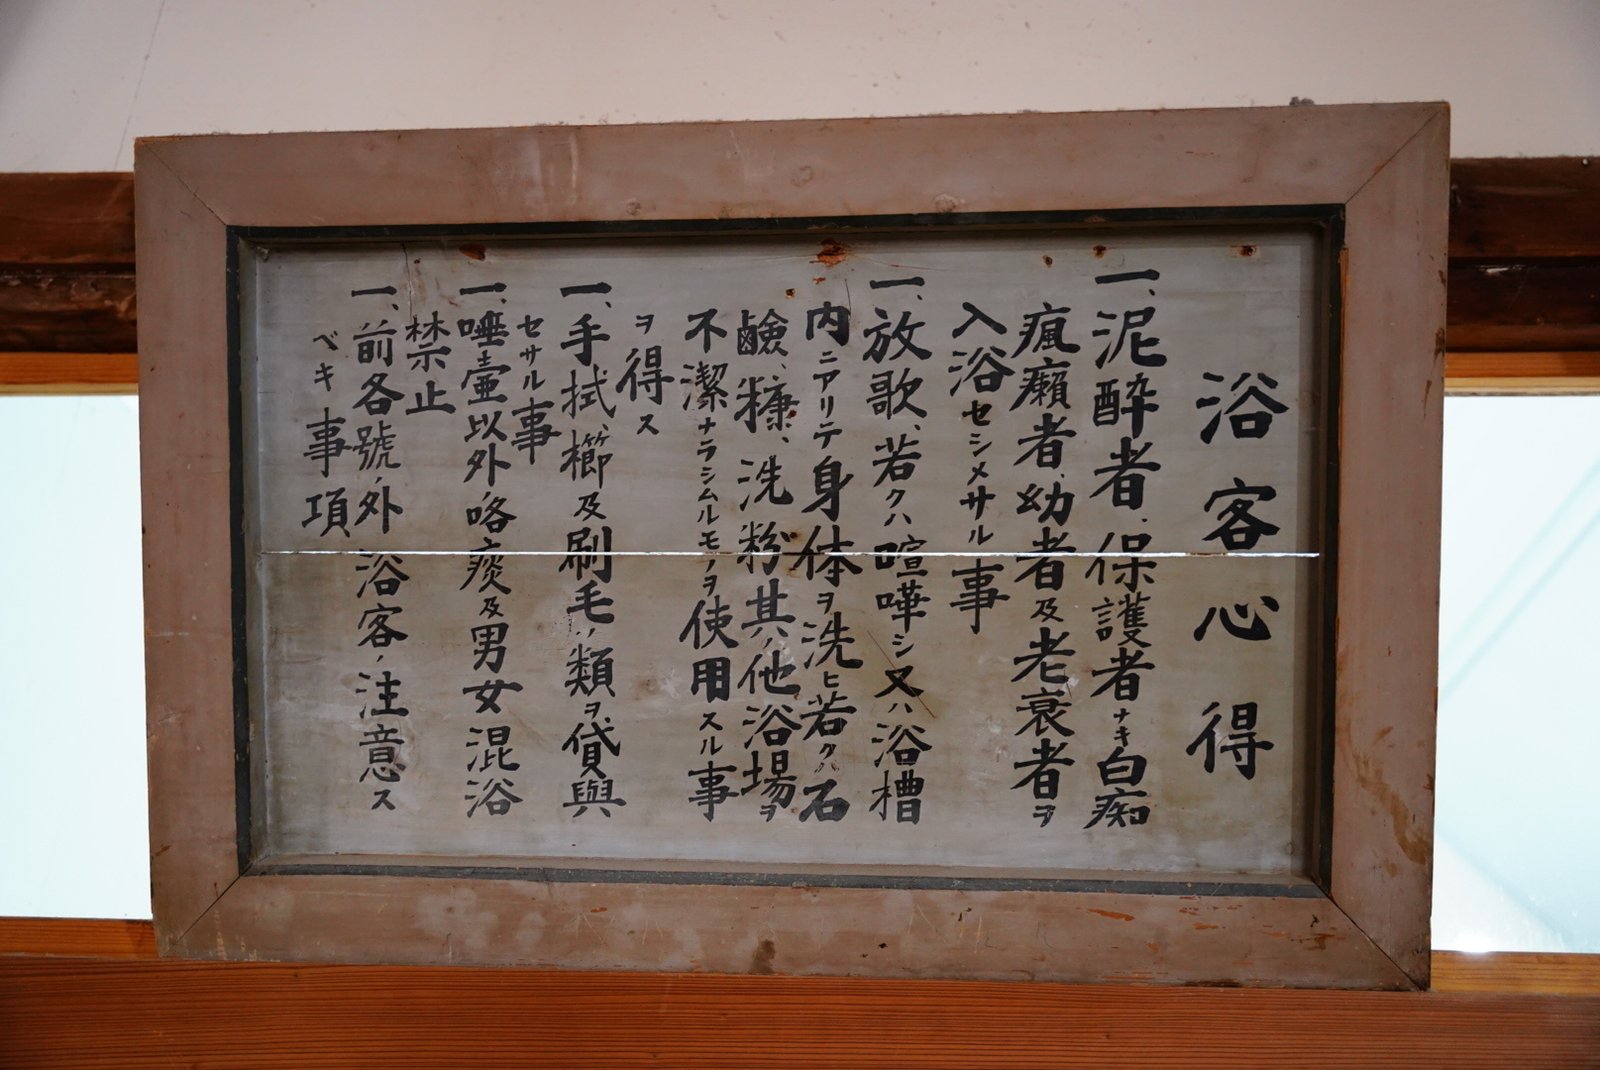 浴客心得
一、泥酔者、保護者ナキ白痴
瘋癲者、幼者及老衰者ヲ
入浴セシメサル事
一、放歌、若クハ喧嘩シ又ハ浴槽
内ニアリテ身体ヲ洗ヒ若クハ石
鹼、糠、洗粉其ノ他浴場ヲ
不潔ナラシムルモノヲ使用スル事
ヲ得ス
一、手拭、櫛及刷毛ノ類ヲ貸與
セサル事
一、唾壷以外咯痰及男女混浴
禁止
一、前各號ノ外浴客ノ注意ス
ベキ事項